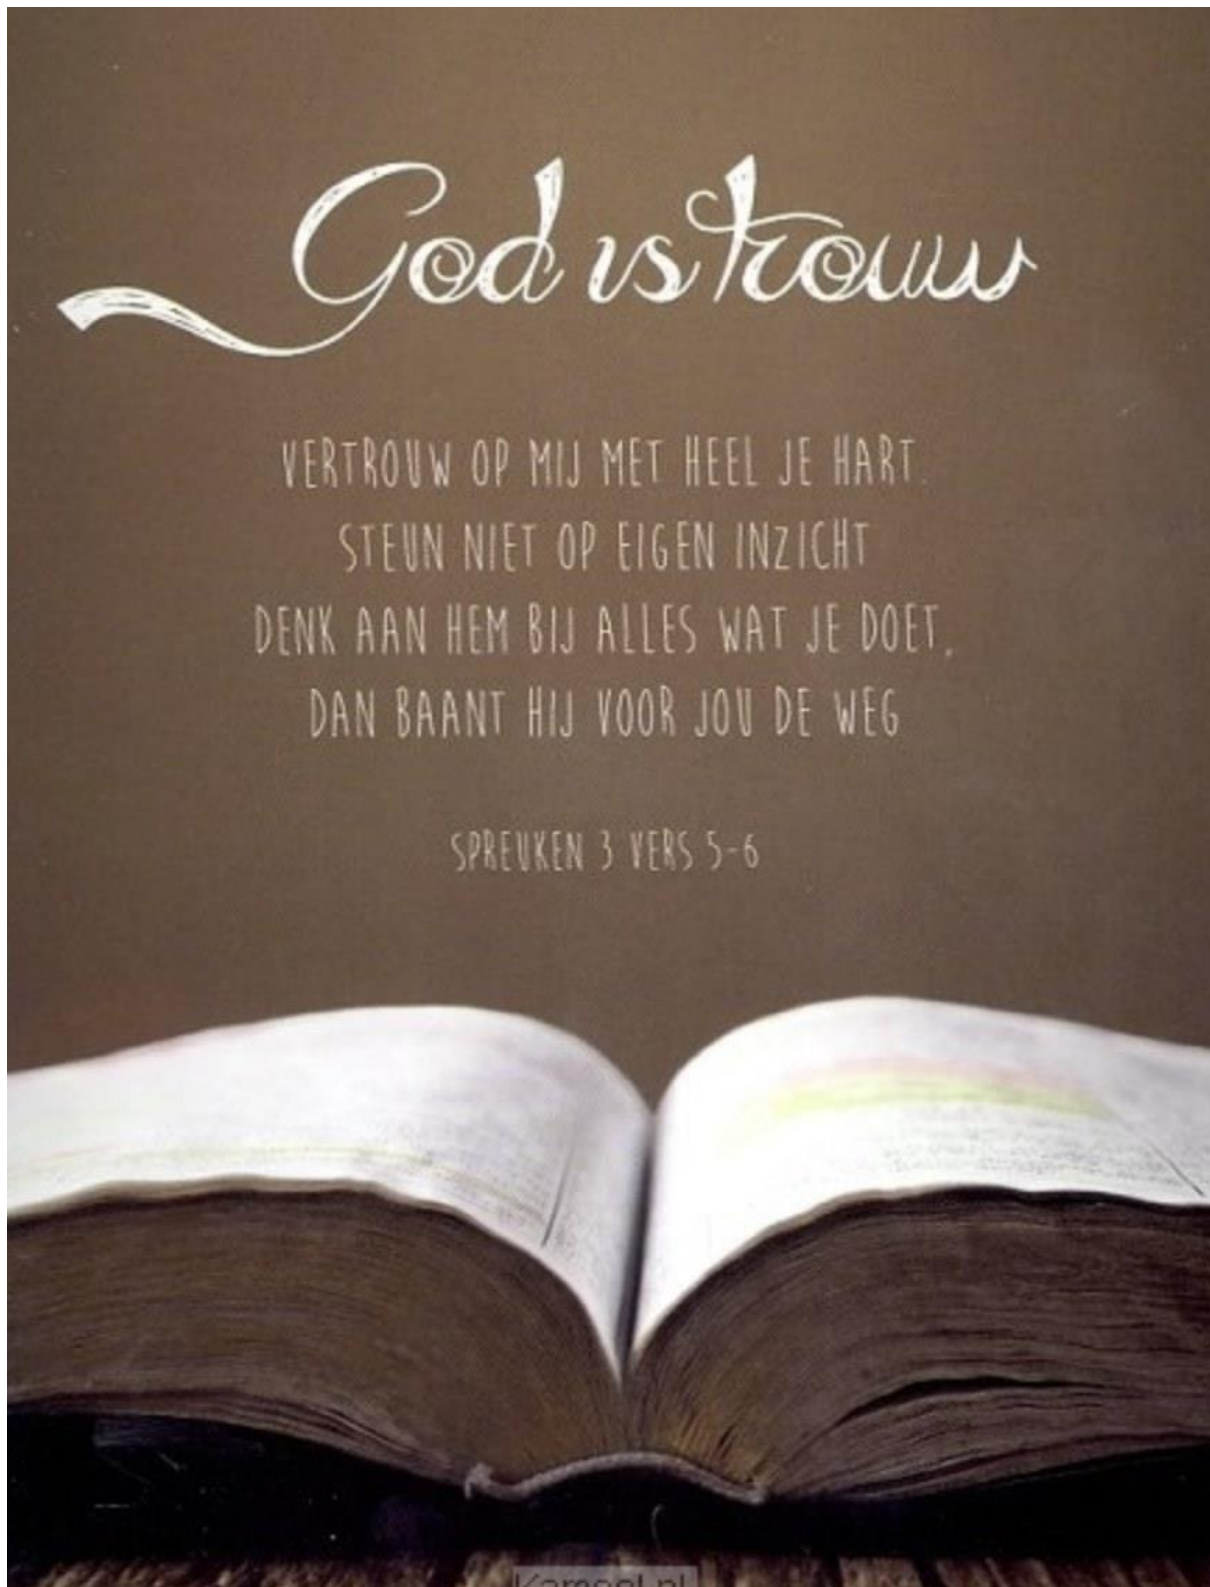 God is trouw
VERTROUW OP MIJ MET HEEL JE HART.
STEUN NIET OP EIGEN INZICHT
DENK AAN HEM BIJ ALLES WAT JE DOET,
DAN BAANT HIJ VOOR JOU DE WEG
SPREUKEN 3 VERS 5-6